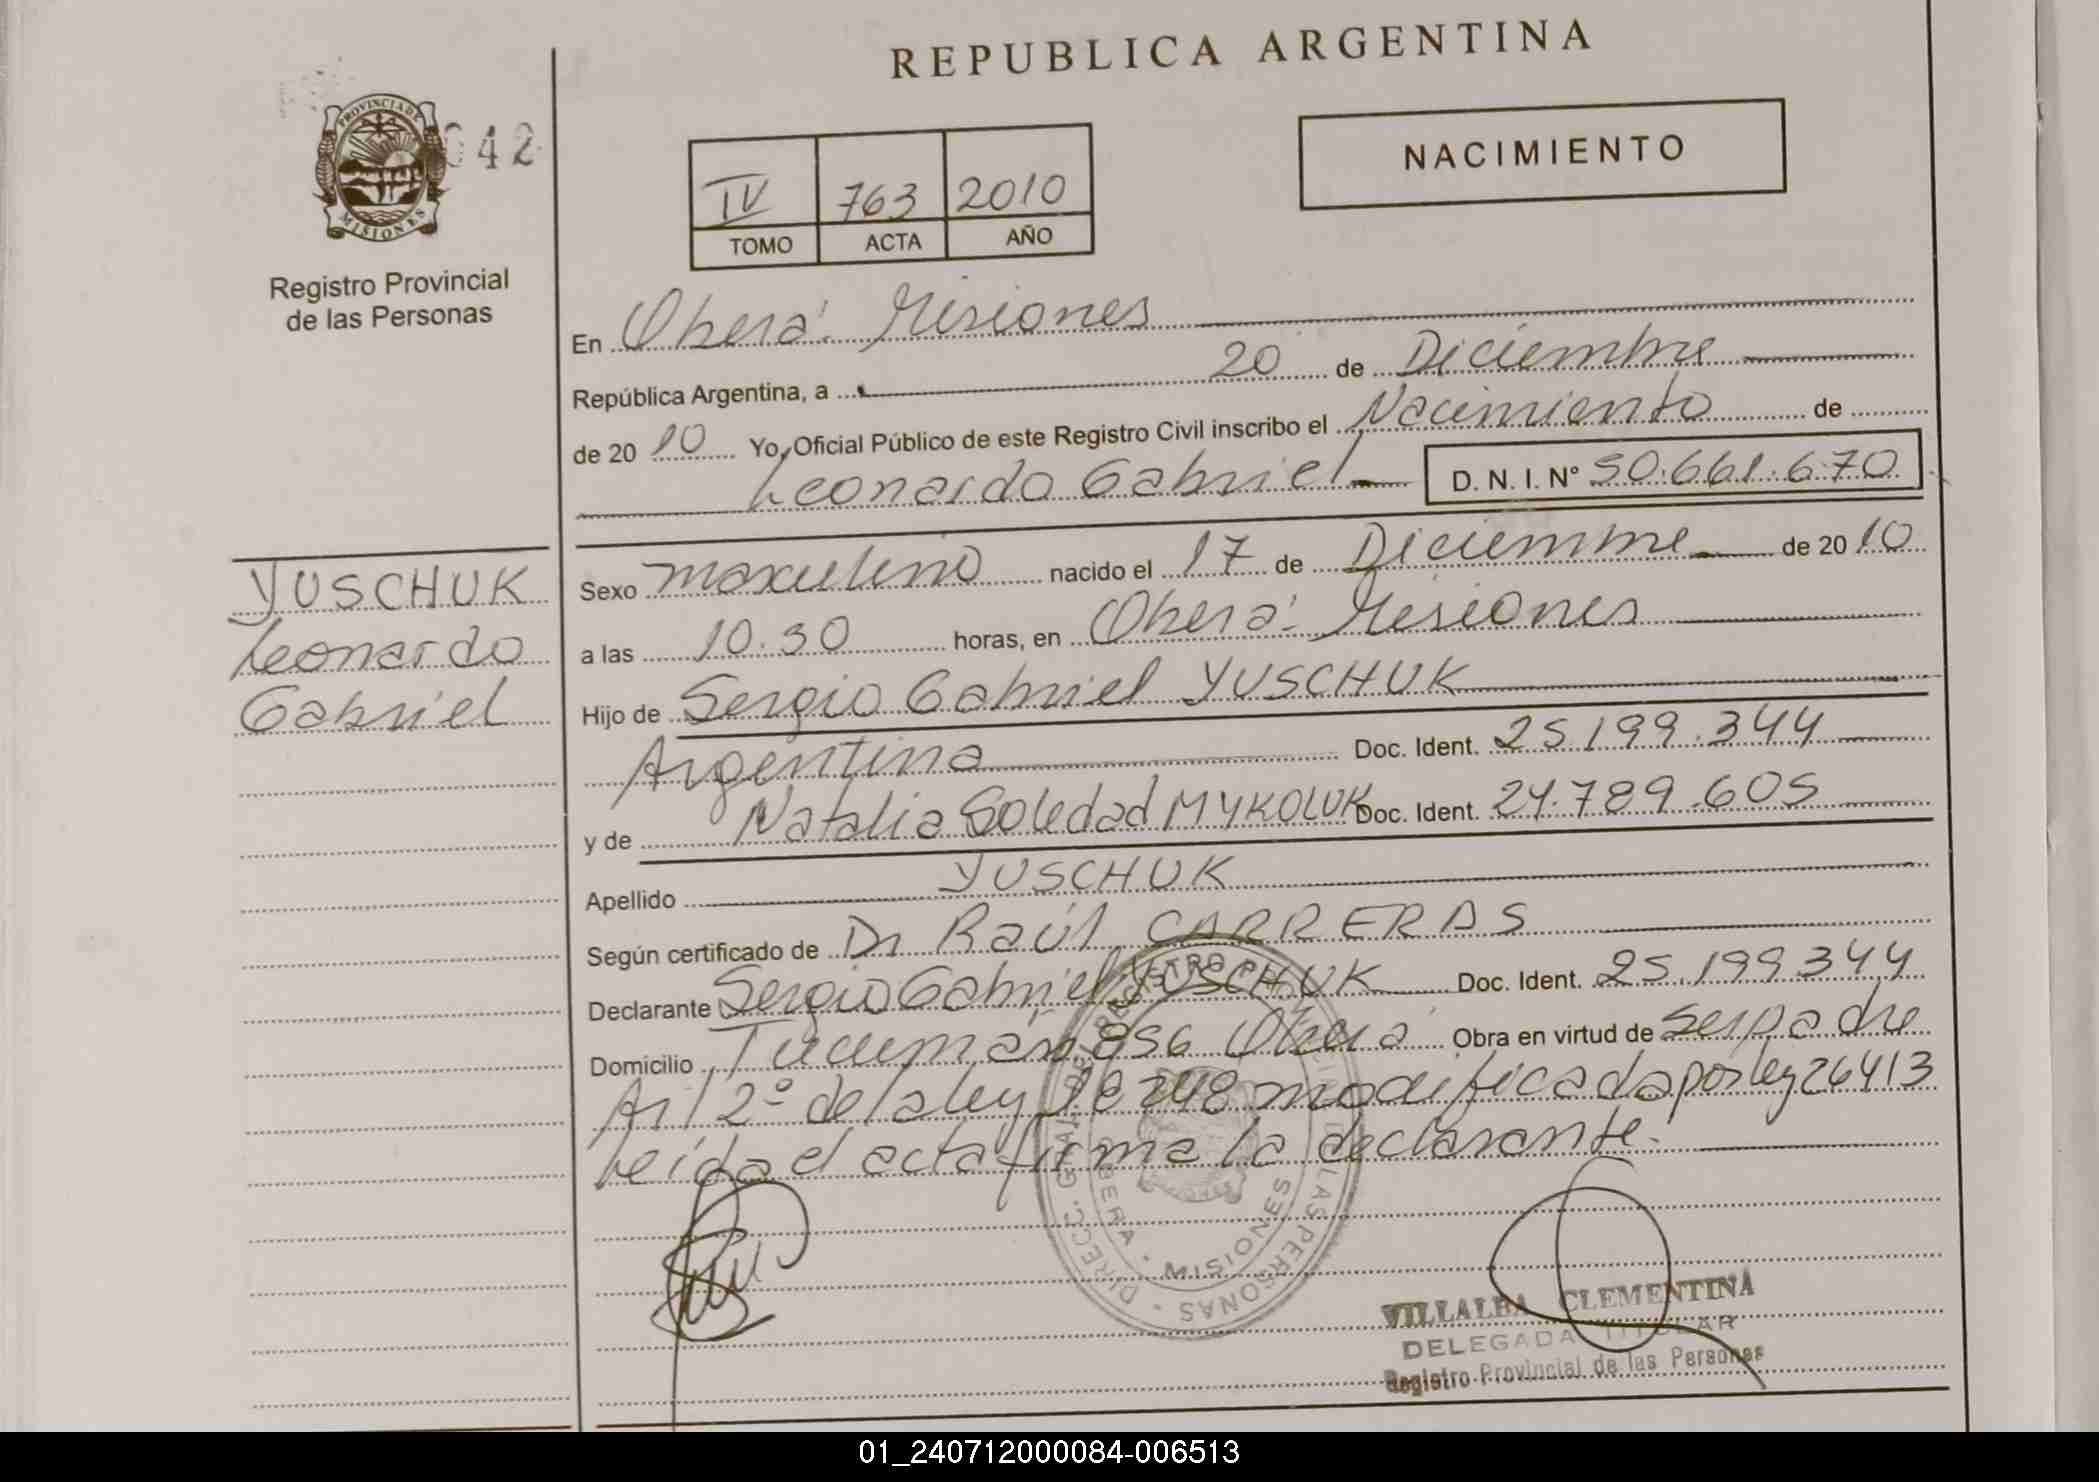 REPUBLICA ARGENTINA
PROVINCIA DE MISIONES
042
Registro Provincial
de las Personas
NACIMIENTO
IV 763 2010
TOMO ACTA AÑO
En Oberá. Misiones
República Argentina, a 20 de Diciembre
de 2010 Yo, Oficial Público de este Registro Civil inscribo el Nacimiento de
Leonardo Gabriel D. N. I. N° 50.661.670
YUSCHUK
Leonardo
Gabriel
Sexo masculino nacido el 17 de Diciembre de 2010
a las 10.30 horas, en Oberá. Misiones
Hijo de Sergio Gabriel YUSCHUK
Argentina Doc. Ident. 25.199.344
y de Natalia Soledad MYKOLUK Doc. Ident. 24.789.605
Apellido YUSCHUK
Según certificado de Dr Raúl CARRERAS
Declarante Sergio Gabriel YUSCHUK Doc. Ident. 25.199.344
Domicilio Tucumán 856 Oberá Obra en virtud de ser padre
Art 2º de la ley 18248 modificada por ley 26413
Leída el acta firma la declarante.
DIRECC. GRAL. DEL REGISTRO PROVINCIAL DE LAS PERSONAS
OBERA - MISIONES
VILLALBA CLEMENTINA
DELEGADA TITULAR
Registro Provincial de las Personas
01_240712000084-006513